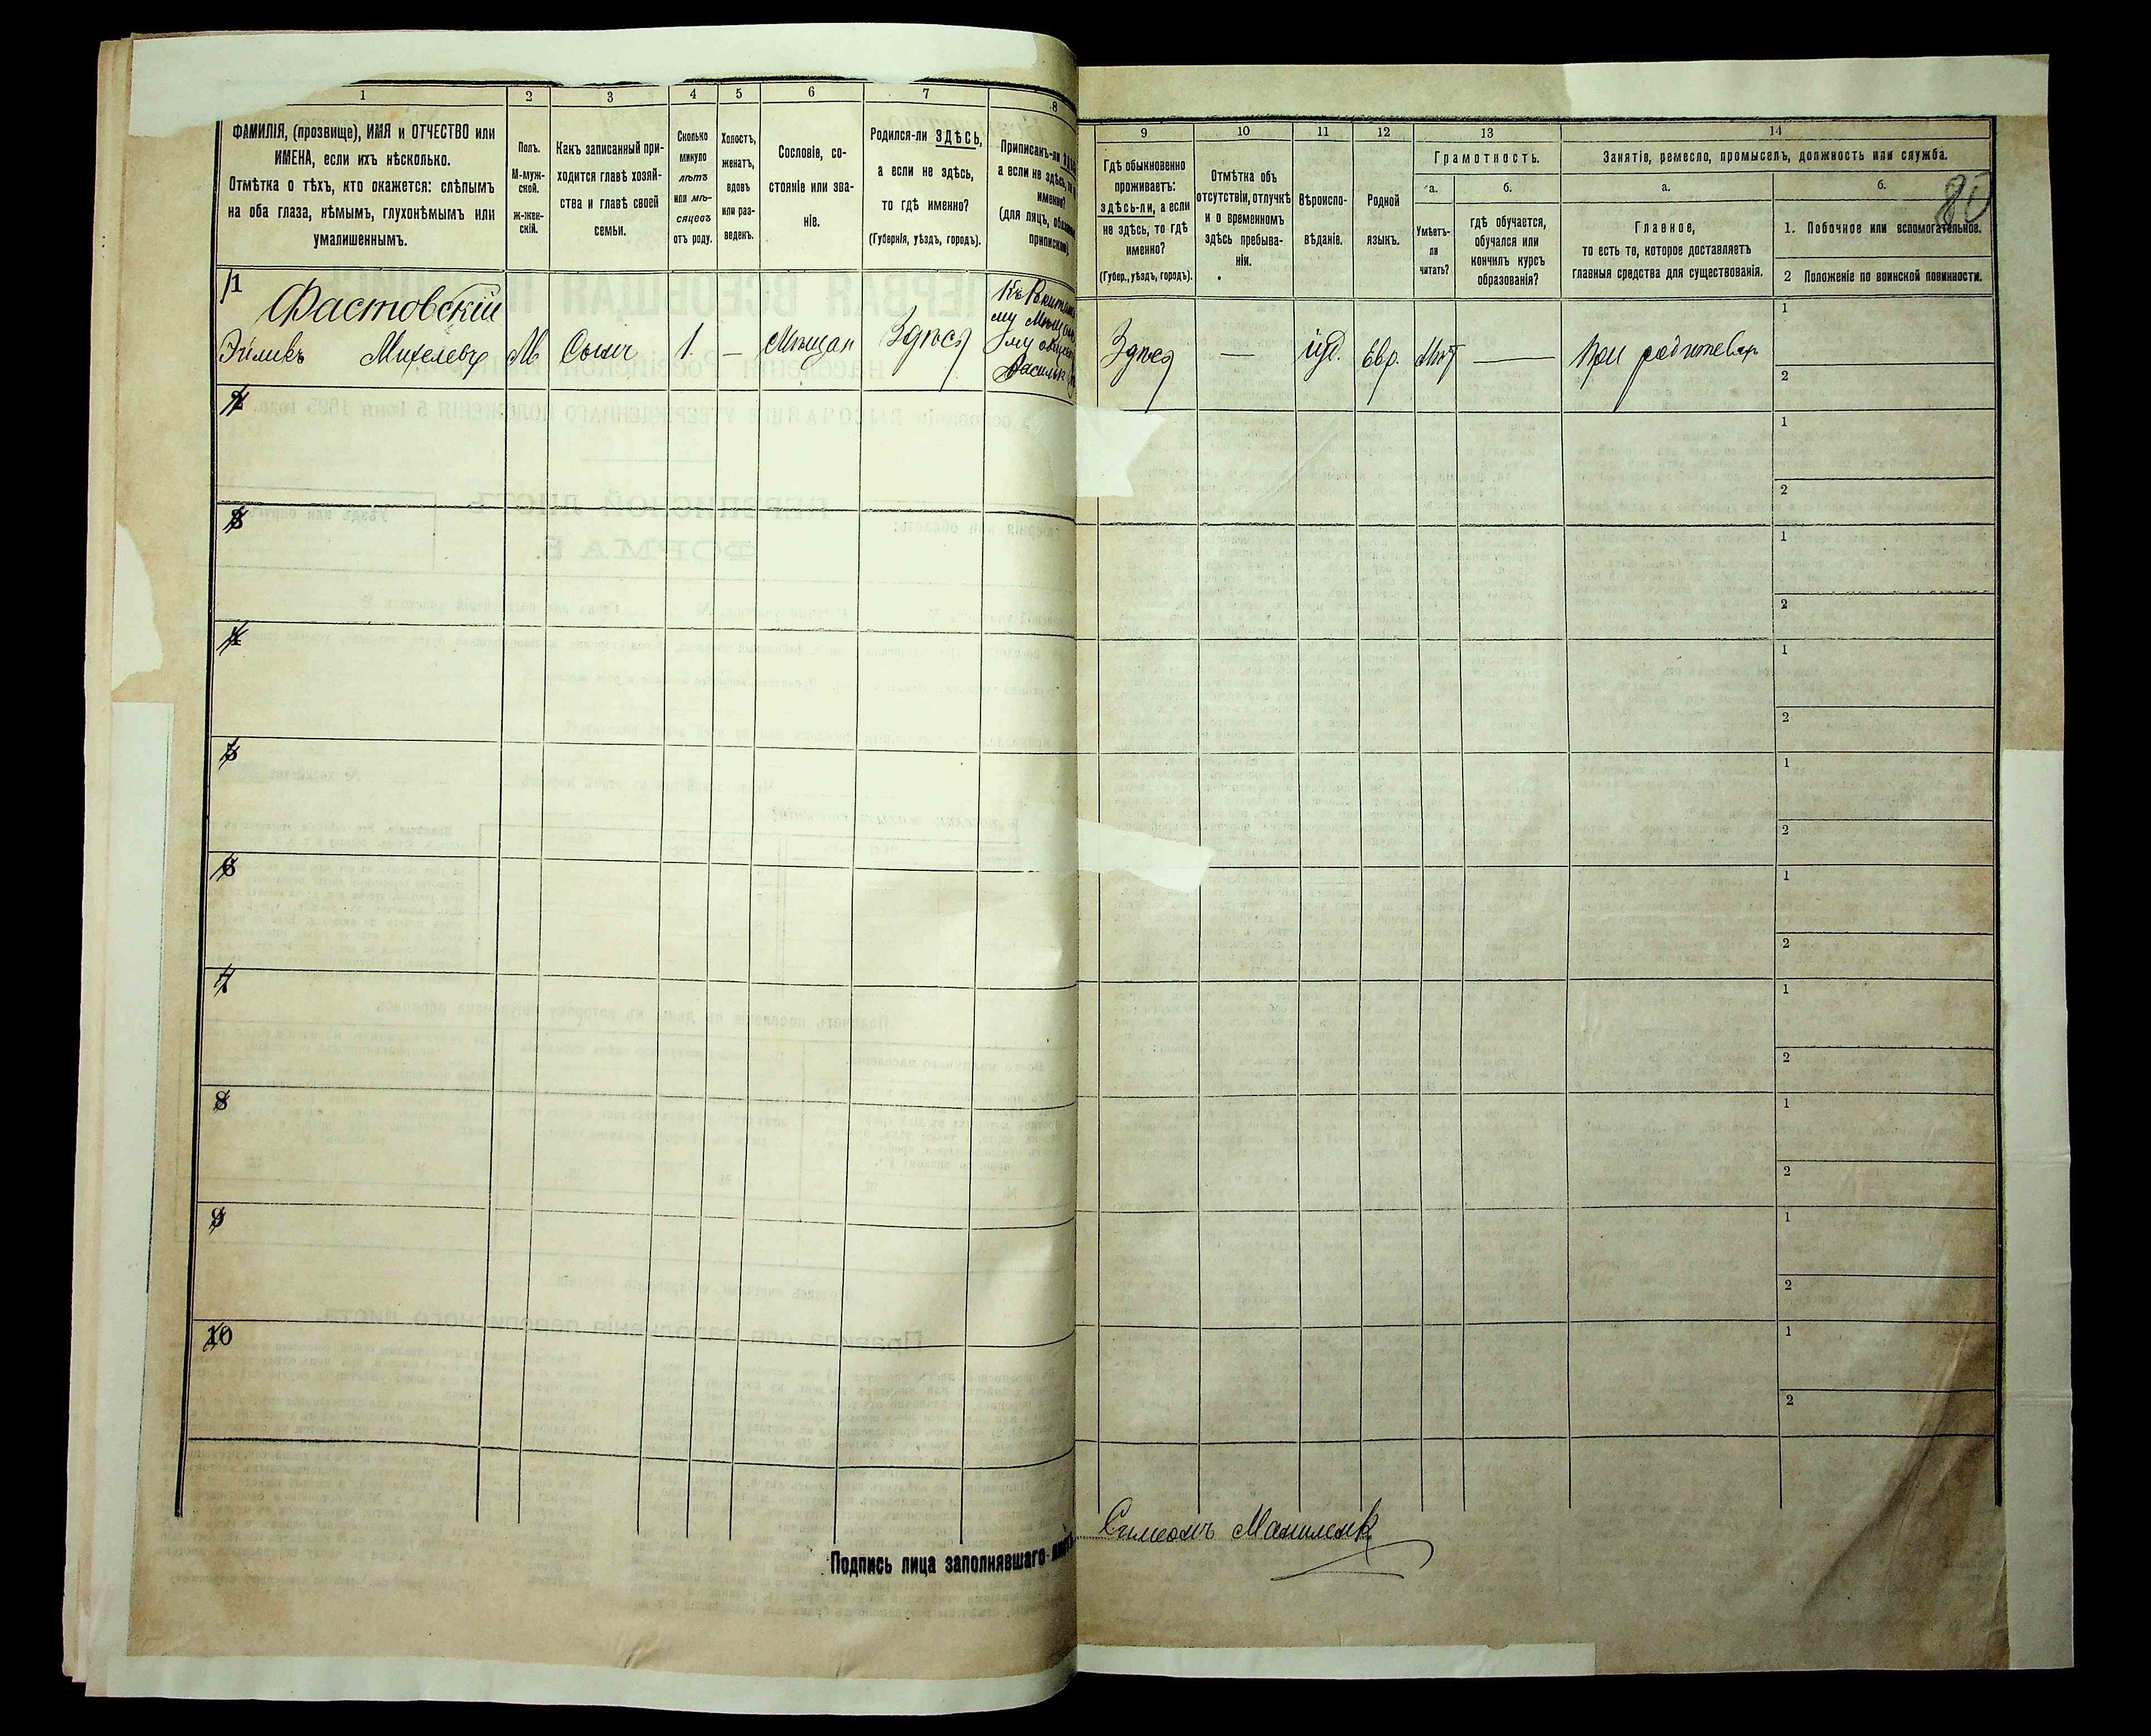 1
2
3
4
5
6
7
8
ФАМИЛІЯ, (прозвище), ИМЯ и ОТЧЕСТВО или
ИМЕНА, если ихъ нѣсколько.
Отмѣтка о тѣхъ, кто окажется: слѣпымъ
на оба глаза, нѣмымъ, глухонѣмымъ или
умалишеннымъ.
Полъ.
М-муж-
ской.
ж-жен-
скій.
Какъ записанный при-
ходится главѣ хозяй-
ства и главѣ своей
семьи.
Сколько
минуло
лѣтъ
или мѣ-
сяцевъ
отъ роду.
Холостъ,
женатъ,
вдовъ
или раз-
веденъ.
Сословіе, со-
стояніе или зва-
ніе.
Родился-ли ЗДѢСЬ,
а если не здѣсь,
то гдѣ именно?
(Губернія, уѣздъ, городъ).
Приписанъ-ли
а если не здѣсь,
именно?
(для лицъ,
1
Фастовскій
Эйликъ
М
Сынъ
1.
—
Мѣщан
Здѣсь
2
3
4
5
6
7
8
9
10
Подпись лица заполнявшаго
9
10
11
12
13
14
Гдѣ обыкновенно
проживаетъ:
здѣсь-ли, а если
не здѣсь, то гдѣ
именно?
(Губер., уѣздъ, городъ).
Отмѣтка объ
отсутствіи, отлучкѣ
и о временномъ
здѣсь пребыва-
ніи.
Вѣроиспо-
вѣданіе.
Родной
языкъ.
Грамотность.
а.
Умѣетъ-
ли
читать?
б.
гдѣ обучается,
обучался или
кончилъ курсъ
образованія?
Занятіе, ремесло, промыселъ, должность или служба.
а.
Главное,
то есть то, которое доставляетъ
главныя средства для существованія.
б.
80
1. Побочное или вспомогательное.
2 Положеніе по воинской повинности.
Здѣсь
—
іуд.
Евр.
Нѣт
—
При
1
2
1
2
1
2
1
2
1
2
1
2
1
2
1
2
1
2
1
2